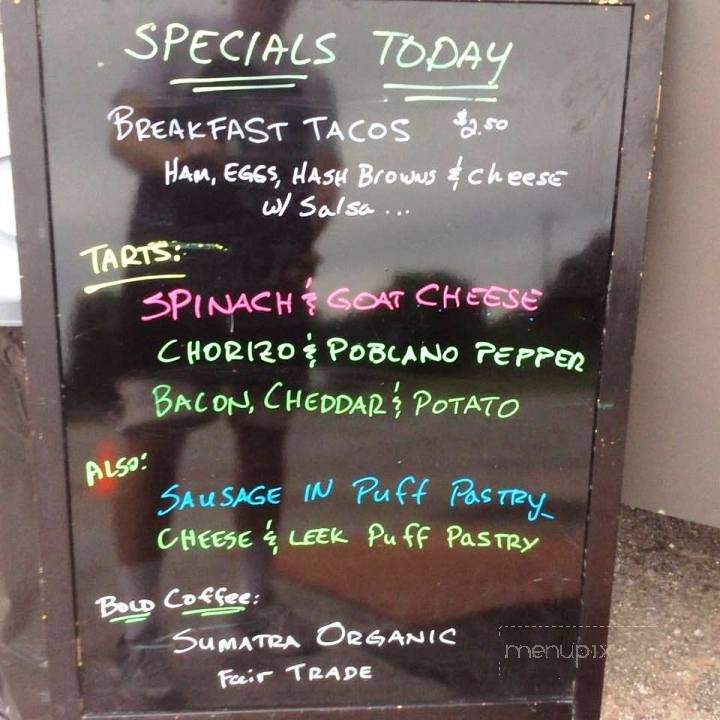 SPECIALS TODAY
BREAKFAST TACOS $2.50
HAM, EGGS, HASH BROWNS & cheese
w/ Salsa ...
TARTS:
SPINACH & GOAT CHEESE
CHORIZO & POBLANO PEPPER
BACON, CHEDDAR & POTATO
ALSO:
SAUSAGE IN Puff PASTRY
CHEESE & LEEK Puff PASTRY
BOLD Coffee:
SUMATRA ORGANIC
Fair TRADE
menupix